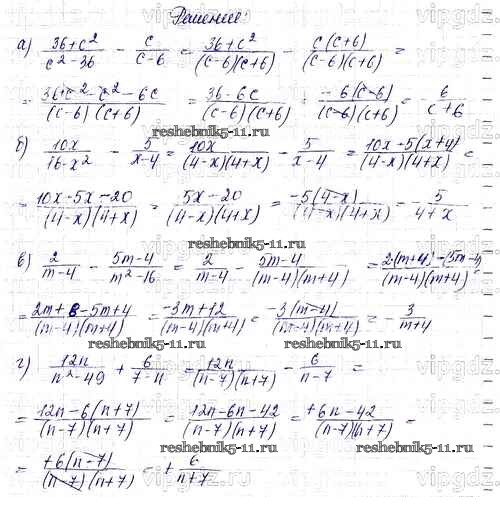 Решение:
а) (36+c²)/(c²-36) - c/(c-6) = (36+c²)/((c-6)(c+6)) - c(c+6)/((c-6)(c+6)) =
= (36+c²-c²-6c)/((c-6)(c+6)) = (36-6c)/((c-6)(c+6)) = -6(c-6)/((c-6)(c+6)) = -6/(c+6)
reshebnik5-11.ru
б) 10x/(16-x²) - 5/(x-4) = 10x/((4-x)(4+x)) - 5/(x-4) = (10x-5(x+4))/((4-x)(4+x)) =
= (10x-5x-20)/((4-x)(4+x)) = (5x-20)/((4-x)(4+x)) = -5(4-x)/((4-x)(4+x)) = -5/(4+x)
reshebnik5-11.ru
в) 2/(m-4) - (5m-4)/(m²-16) = 2/(m-4) - (5m-4)/((m-4)(m+4)) = (2(m+4)-(5m-4))/((m-4)(m+4)) =
= (2m+8-5m+4)/((m-4)(m+4)) = (-3m+12)/((m-4)(m+4)) = -3(m-4)/((m-4)(m+4)) = -3/(m+4)
reshebnik5-11.ru reshebnik5-11.ru
г) 12n/(n²-49) + 6/(7-n) = 12n/((n-7)(n+7)) - 6/(n-7) =
= (12n-6(n+7))/((n-7)(n+7)) = (12n-6n-42)/((n-7)(n+7)) = (+6n-42)/((n-7)(n+7)) =
reshebnik5-11.ru
= +6(n-7)/((n-7)(n+7)) = +6/(n+7)
reshebnik5-11.ru